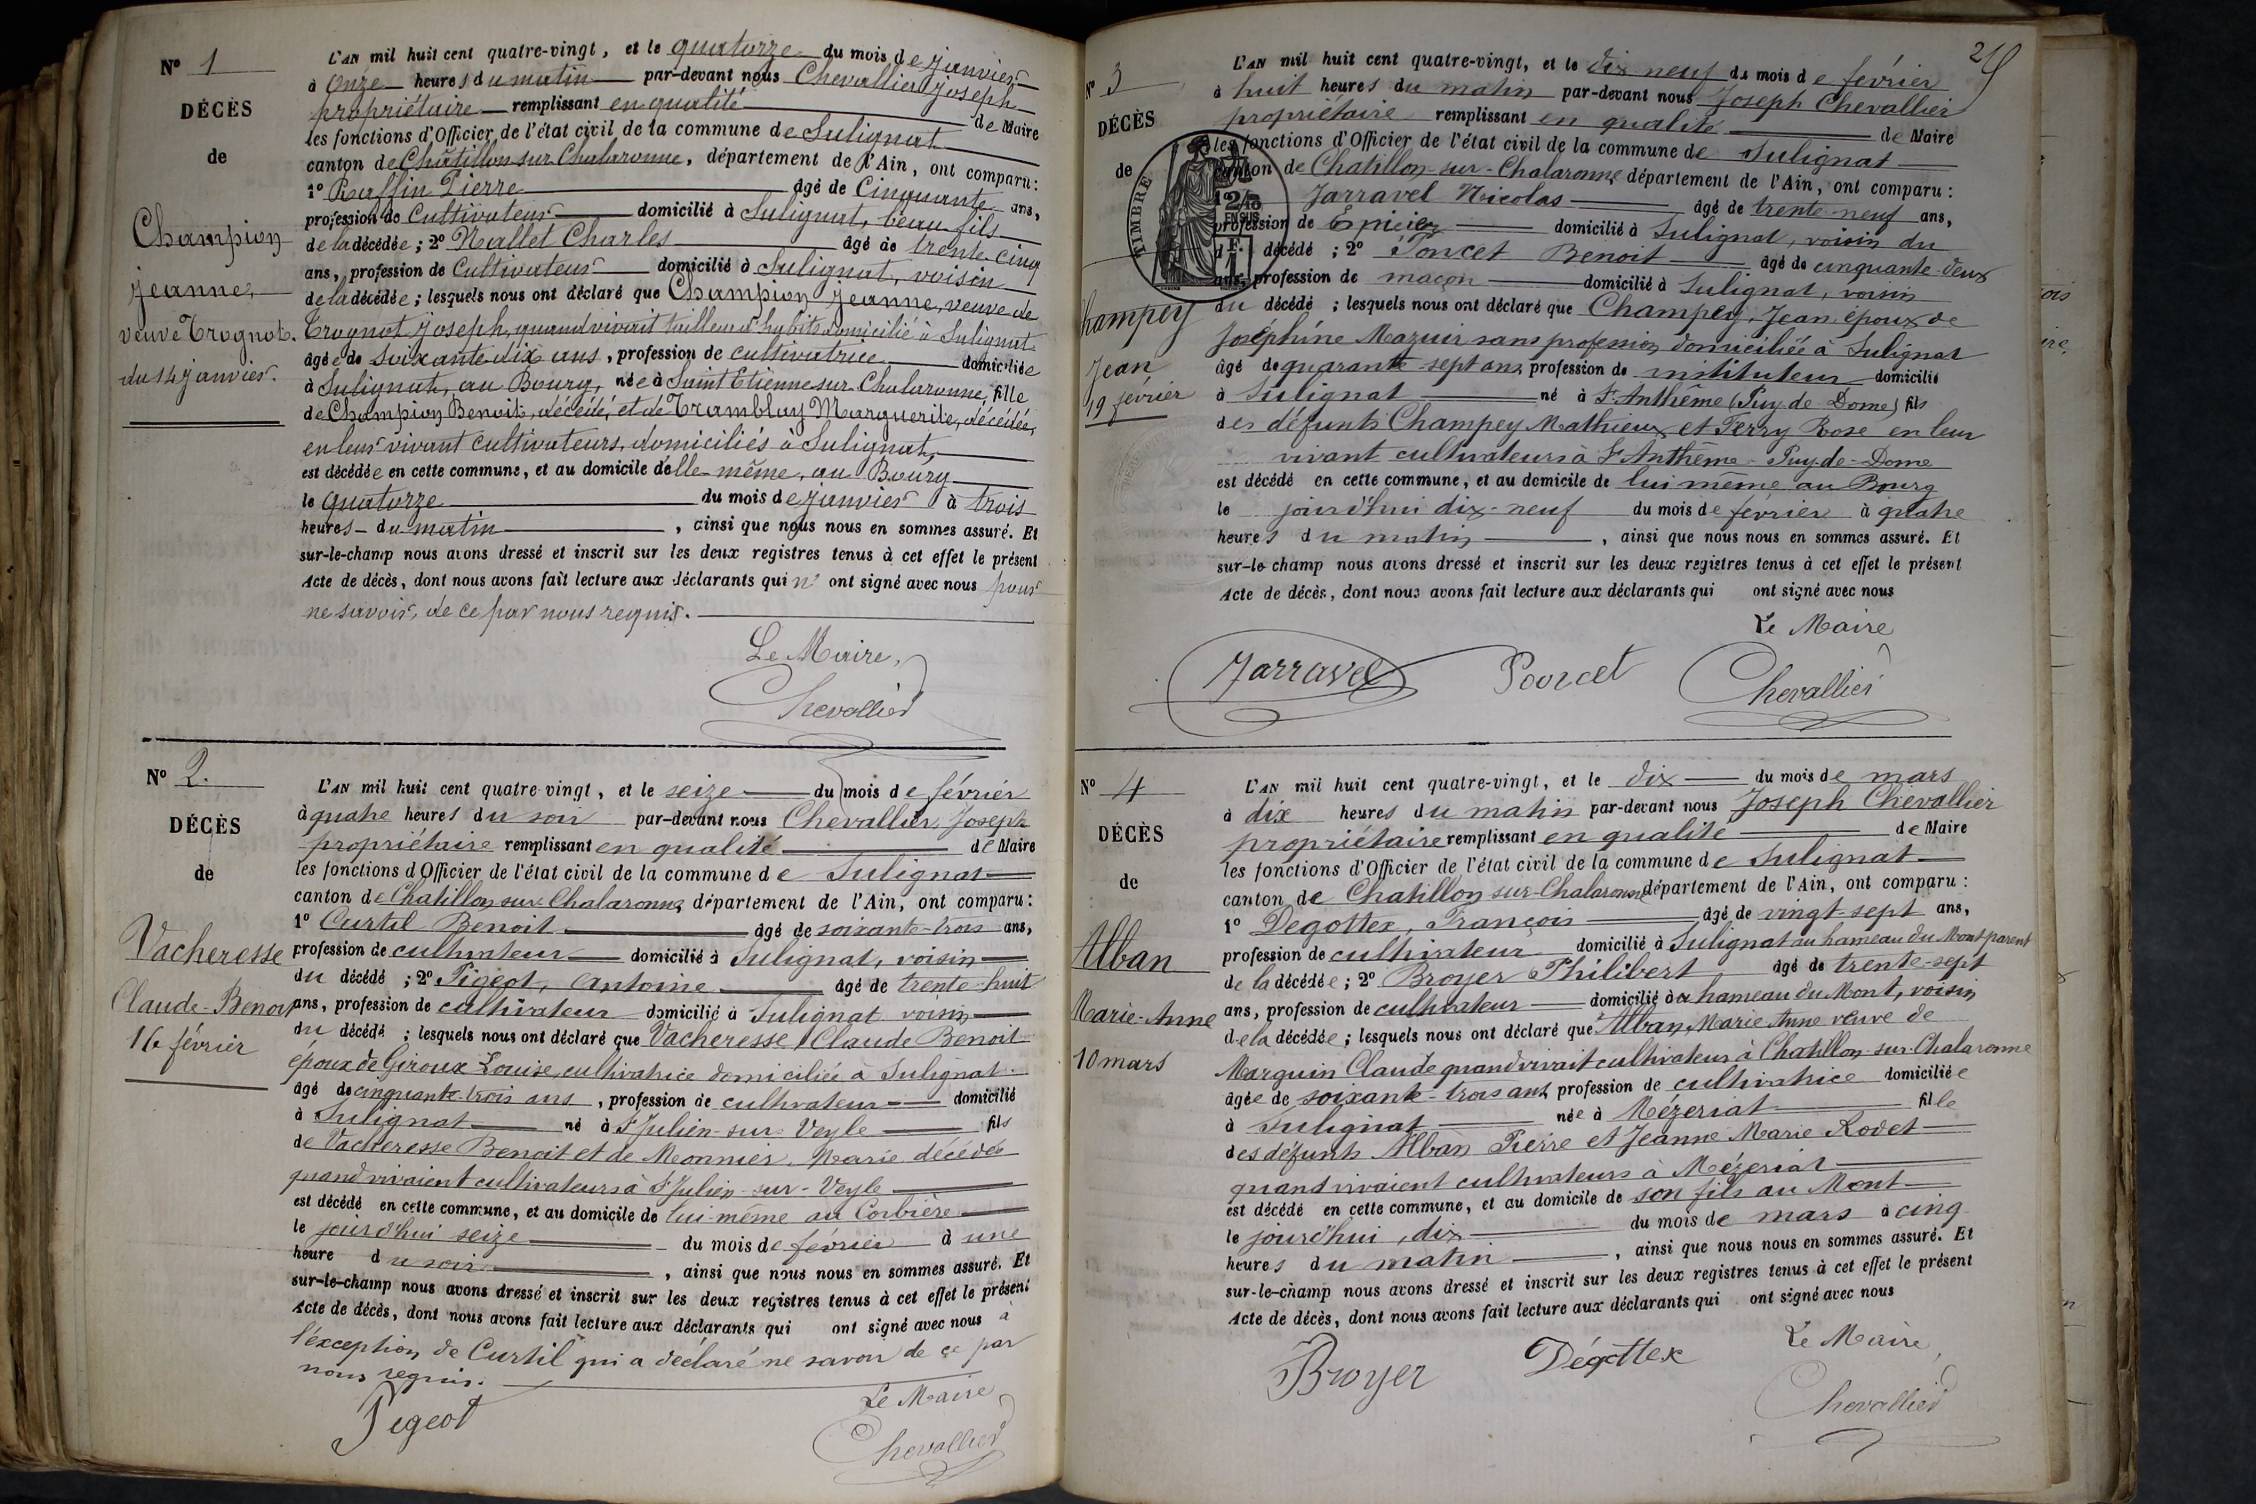 Nº 1
DÉCÈS
de
Champion
Jeanne,
veuve Trognot.
du 14 janvier.
L'AN mil huit cent quatre-vingt, et le quatorze du mois de janvier
à Onze heures du matin par-devant nous Chevallier Joseph
propriétaire remplissant en qualité de Maire
les fonctions d'Officier de l'état civil de la commune de Sulignat
canton de Châtillon sur Chalaronne, département de l'Ain, ont comparu :
1º Raffin Pierre âgé de Cinquante ans,
profession de Cultivateur domicilié à Sulignat, beau-fils
de la décédée ; 2º Nallet Charles âgé de trente-cinq
ans, profession de Cultivateur domicilié à Sulignat, voisin
de la décédée ; lesquels nous ont déclaré que Champion Jeanne, veuve de
Trognot Joseph, quand vivait tailleur d'habits domicilié à Sulignat
âgée de Soixante dix ans, profession de cultivatrice domiciliée
à Sulignat, au Bourg, née à Saint Etienne sur Chalaronne, fille
de Champion Benoit, décédé, et de Tramblay Marguerite, décédée,
en leur vivant cultivateurs, domiciliés à Sulignat,
est décédée en cette commune, et au domicile d'elle-même, au Bourg
le quatorze du mois de janvier à trois
heures du matin, ainsi que nous nous en sommes assuré. Et
sur-le-champ nous avons dressé et inscrit sur les deux registres tenus à cet effet le présent
Acte de décès, dont nous avons fait lecture aux déclarants qui n' ont signé avec nous pour
ne savoir, de ce par nous requis.
Le Maire,
Chevallier
Nº 2.
DÉCÈS
de
Vacheresse
Claude-Benoit
16 février
L'AN mil huit cent quatre-vingt, et le seize du mois de février
à quatre heures du soir par-devant nous Chevallier, Joseph
propriétaire remplissant en qualité de Maire
les fonctions d'Officier de l'état civil de la commune de Sulignat
canton de Chatillon sur Chalaronne, département de l'Ain, ont comparu :
1º Curtil Benoit âgé de soixante-trois ans,
profession de cultivateur domicilié à Sulignat, voisin
du décédé ; 2º Pigeot, Antoine âgé de trente-huit
ans, profession de cultivateur domicilié à Sulignat voisin
du décédé ; lesquels nous ont déclaré que Vacheresse Claude Benoit
époux de Giroux Louise, cultivatrice domiciliée à Sulignat
âgé de cinquante-trois ans, profession de cultivateur domicilié
à Sulignat né à St Julien-sur-Veyle fils
de Vacheresse Benoit et de Monnier Marie décédés
quand vivaient cultivateurs à St Julien-sur-Veyle
est décédé en cette commune, et au domicile de lui-même au Corbière
le jourd'hui seize du mois de février à une
heure du soir, ainsi que nous nous en sommes assuré. Et
sur-le-champ nous avons dressé et inscrit sur les deux registres tenus à cet effet le présent
Acte de décès, dont nous avons fait lecture aux déclarants qui ont signé avec nous à
l'exception de Curtil qui a déclaré ne savoir de ce par
nous requis.
Pigeot
Le Maire
Chevallier
Nº 3
DÉCÈS
de
TIMBRE
12 5/10
EN SUS
Champey
Jean
19 février
L'AN mil huit cent quatre-vingt, et le dix neuf du mois de février
à huit heures du matin par-devant nous Joseph Chevallier
propriétaire remplissant en qualité de Maire
les fonctions d'Officier de l'état civil de la commune de Sulignat
canton de Chatillon-sur-Chalaronne département de l'Ain, ont comparu :
Jarravel Nicolas âgé de trente-neuf ans,
profession de Epicier domicilié à Sulignat, voisin du
décédé ; 2º Poncet Benoit âgé de cinquante-deux
ans, profession de maçon domicilié à Sulignat, voisin
du décédé ; lesquels nous ont déclaré que Champey, Jean époux de
Joséphine Mazuir sans profession domiciliée à Sulignat
âgé de quarante-sept ans, profession de instituteur domicilié
à Sulignat né à St Anthême (Puy de Dôme) fils
des défunts Champey Mathieux et Ferry Rose en leur
vivant cultivateurs à St Anthême - Puy-de-Dome
est décédé en cette commune, et au domicile de lui même au Bourg
le jourd'hui dix-neuf du mois de février à quatre
heures du matin, ainsi que nous nous en sommes assuré. Et
sur-le-champ nous avons dressé et inscrit sur les deux registres tenus à cet effet le présent
Acte de décès, dont nous avons fait lecture aux déclarants qui ont signé avec nous
Le Maire
Jarravel Poncet Chevallier
Nº 4
DÉCÈS
de
Alban
Marie-Anne
10 mars
L'AN mil huit cent quatre-vingt, et le dix du mois de mars
à dix heures du matin par-devant nous Joseph Chevallier
propriétaire remplissant en qualité de Maire
les fonctions d'Officier de l'état civil de la commune de Sulignat
canton de Chatillon sur-Chalaronne département de l'Ain, ont comparu :
1º Degottex, François âgé de vingt-sept ans,
profession de cultivateur domicilié à Sulignat au hameau du Mont parent
de la décédée ; 2º Broyer Philibert âgé de trente-sept
ans, profession de cultivateur domicilié à hameau du Mont, voisin
de la décédée ; lesquels nous ont déclaré que Alban, Marie Anne veuve de
Marguin Claude quand vivait cultivateur à Chatillon-sur-Chalaronne
âgée de soixante-trois ans, profession de cultivatrice domiciliée
à Sulignat née à Mézeriat fille
des défunts Alban Pierre et Jeanne Marie Rodet
quand vivaient cultivateurs à Mézeriat
est décédé en cette commune, et au domicile de son fils au Mont
le jourd'hui, dix du mois de mars à cinq
heures du matin, ainsi que nous nous en sommes assuré. Et
sur-le-champ nous avons dressé et inscrit sur les deux registres tenus à cet effet le présent
Acte de décès, dont nous avons fait lecture aux déclarants qui ont signé avec nous
Le Maire,
Broyer Dégottex
Chevallier